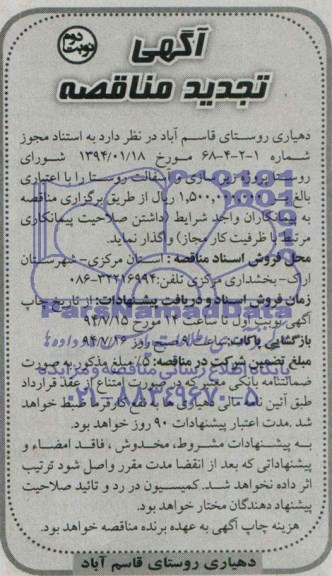 نوبت دوم
آگهی
تجدید مناقصه
دهیاری روستای قاسم آباد در نظر دارد به استناد مجوز
شماره ۱-۲-۴-۶۸ مورخ ۱۳۹۴/۰۱/۱۸ شورای
روستا پروژه زیرسازی و آسفالت روستا را با اعتباری
بالغ بر ۱,۵۰۰,۰۰۰,۰۰۰ ریال از طریق برگزاری مناقصه
به پیمانکاران واجد شرایط (داشتن صلاحیت پیمانکاری
مرتبط با ظرفیت کار مجاز) واگذار نماید.
محل فروش اسناد مناقصه: استان مرکزی- شهرستان
اراک- بخشداری مرکزی تلفن: ۳۲۲۱۶۹۹۴-۰۸۶
زمان فروش اسناد و دریافت پیشنهادات: از تاریخ چاپ
آگهی نوبت اول تا ساعت ۱۴ مورخ ۹۴/۷/۱۵
بازگشایی پاکات: ساعت ۹ صبح روز ۹۴/۷/۱۶
مبلغ تضمین شرکت در مناقصه: ۵٪ مبلغ مذکور به صورت
ضمانتنامه بانکی معتبر که در صورت امتناع از عقد قرارداد
طبق آئین نامه مالی دهیاری ها به نفع کارفرما ضبط خواهد
شد. مدت اعتبار پیشنهادات ۹۰ روز خواهد بود.
به پیشنهادات مشروط، مخدوش، فاقد امضاء و
پیشنهاداتی که بعد از انقضا مدت مقرر واصل شود ترتیب
اثر داده نخواهد شد. کمیسیون در رد و تائید صلاحیت
پیشنهاد دهندگان مختار خواهد بود.
هزینه چاپ آگهی به عهده برنده مناقصه خواهد بود.
دهیاری روستای قاسم آباد
ParsNamadData
پایگاه اطلاع رسانی مناقصه و مزایده
۰۲۱-۸۸۳۴۹۶۷۰-۵